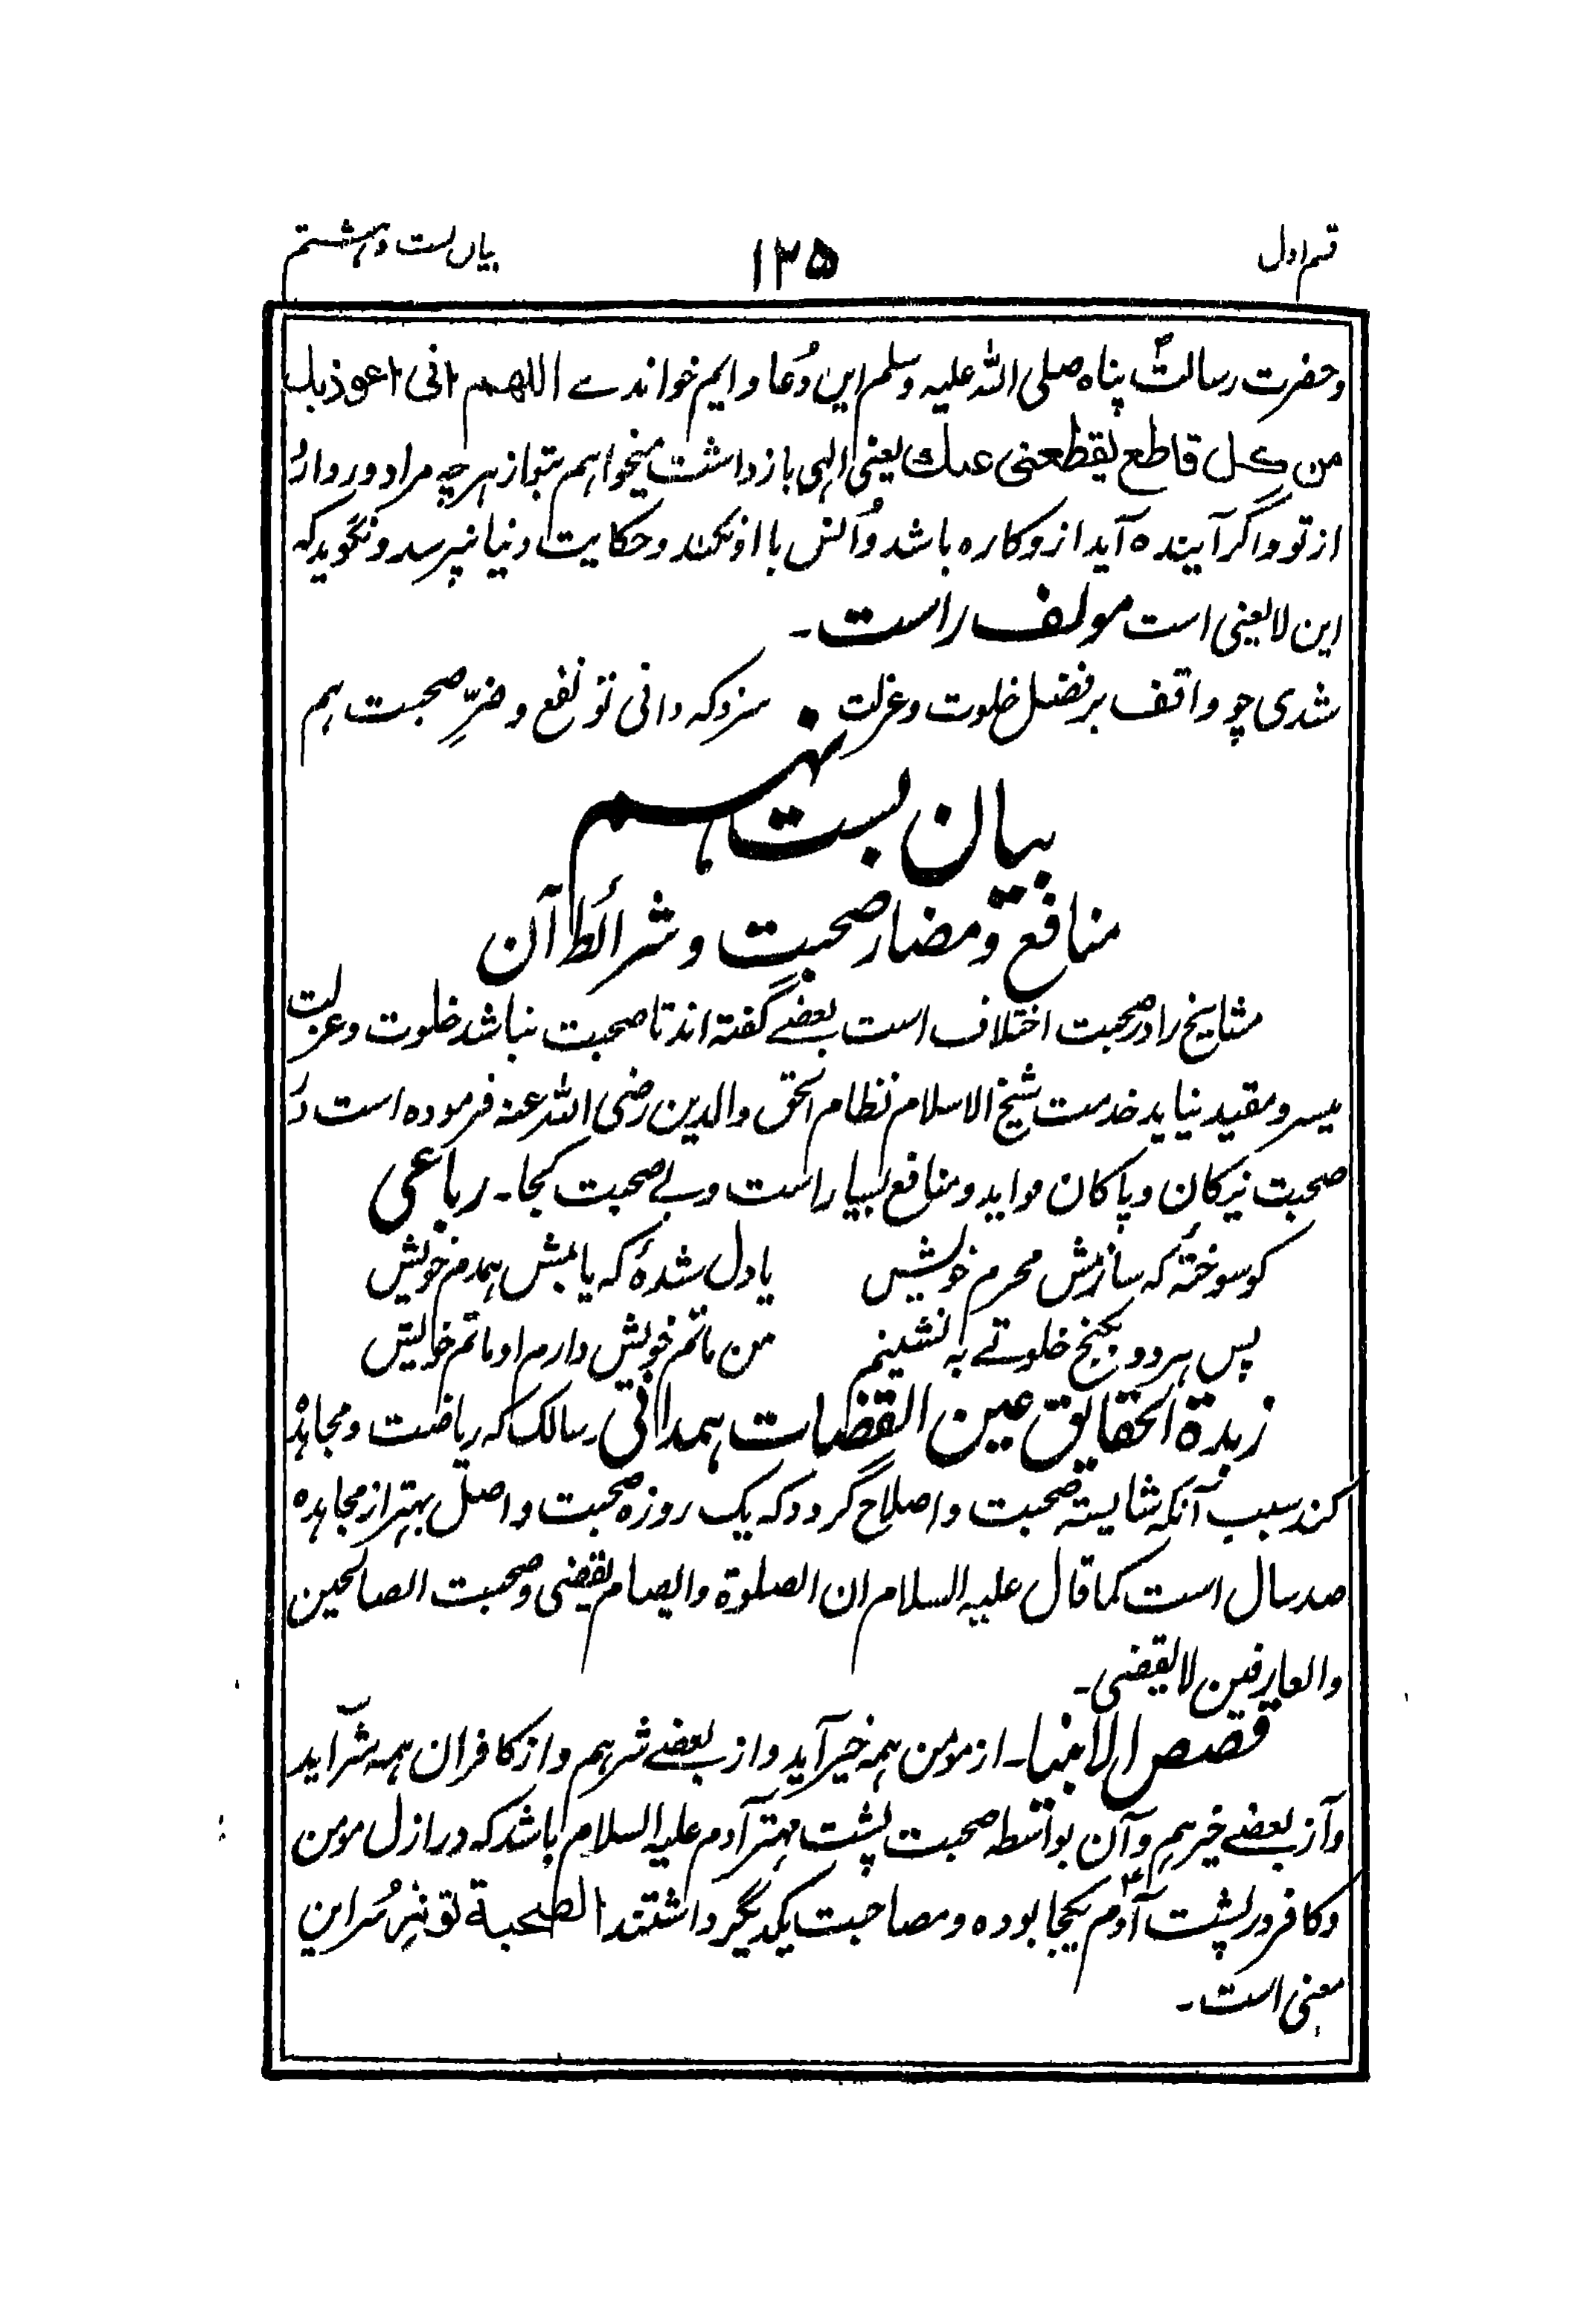 قسم اول ۱۳۵ بیان بست و هشتم
و حضرت رسالت پناه صلی الله علیه وسلم این دُعا دایم خواندے اللهم انی اعوذبك
من کل قاطع یقطعنی عنك یعنی الٰہی بازداشت میخواہم بتو از ہرچہ مرا دور دارد
از تو و اگر آینده آید ازو کاره باشد و اُنس با او نکند و حکایت دنیا نپرسد و نگوید که
این لایعنی است مولف راست۔
شدی چو واقف بر فضل خلوت و عزلت سزد که دانی تو نفع و ضرِّ صحبت ہم
بیان بست نہم
منافع و مضار صحبت و شرائط آن
مشایخ را در صحبت اختلاف است بعضے گفته اند تا صحبت نباشد خلوت و عزلت
میسر و مقید نیاید خدمت شیخ الاسلام نظام الحق والدین رضی الله عنه فرموده است در
صحبت نیکان و پاکان مواید و منافع بسیار است و بے صحبت کجا۔ رباعی
کو سوختۂ که سازمش محرم خویش یا دل شدۂ که یابمش ہمدم خویش
پس ہر دو بکنج خلوتے بہ نشینم من ماتم خویش دارم او ماتم خویش
زبدة الحقایق عین القضات ہمدانی سالک که ریاضت و مجاہدہ
کند سبب آنکه شایسته صحبت و اصلاح گردد که یک روزہ صحبت واصل بہتر از مجاہدہ
صد سال است کما قال علیه السلام ان الصلوة والصیام یقضی و صحبت الصالحین
والعارفین لا یقضی۔
قصص الانبیا۔ از مومن ہمه خیر آید و از بعضے شر ہم و از کافران ہمه شرّ آید
و از بعضے خیر ہم و آن بواسطه صحبت پشت مہتر آدم علیه السلام باشد که در ازل مومن
و کافر در پشت آدم یکجا بوده و مصاحبت یکدیگر داشتند الصحبة توثر سُر این
معنی است۔